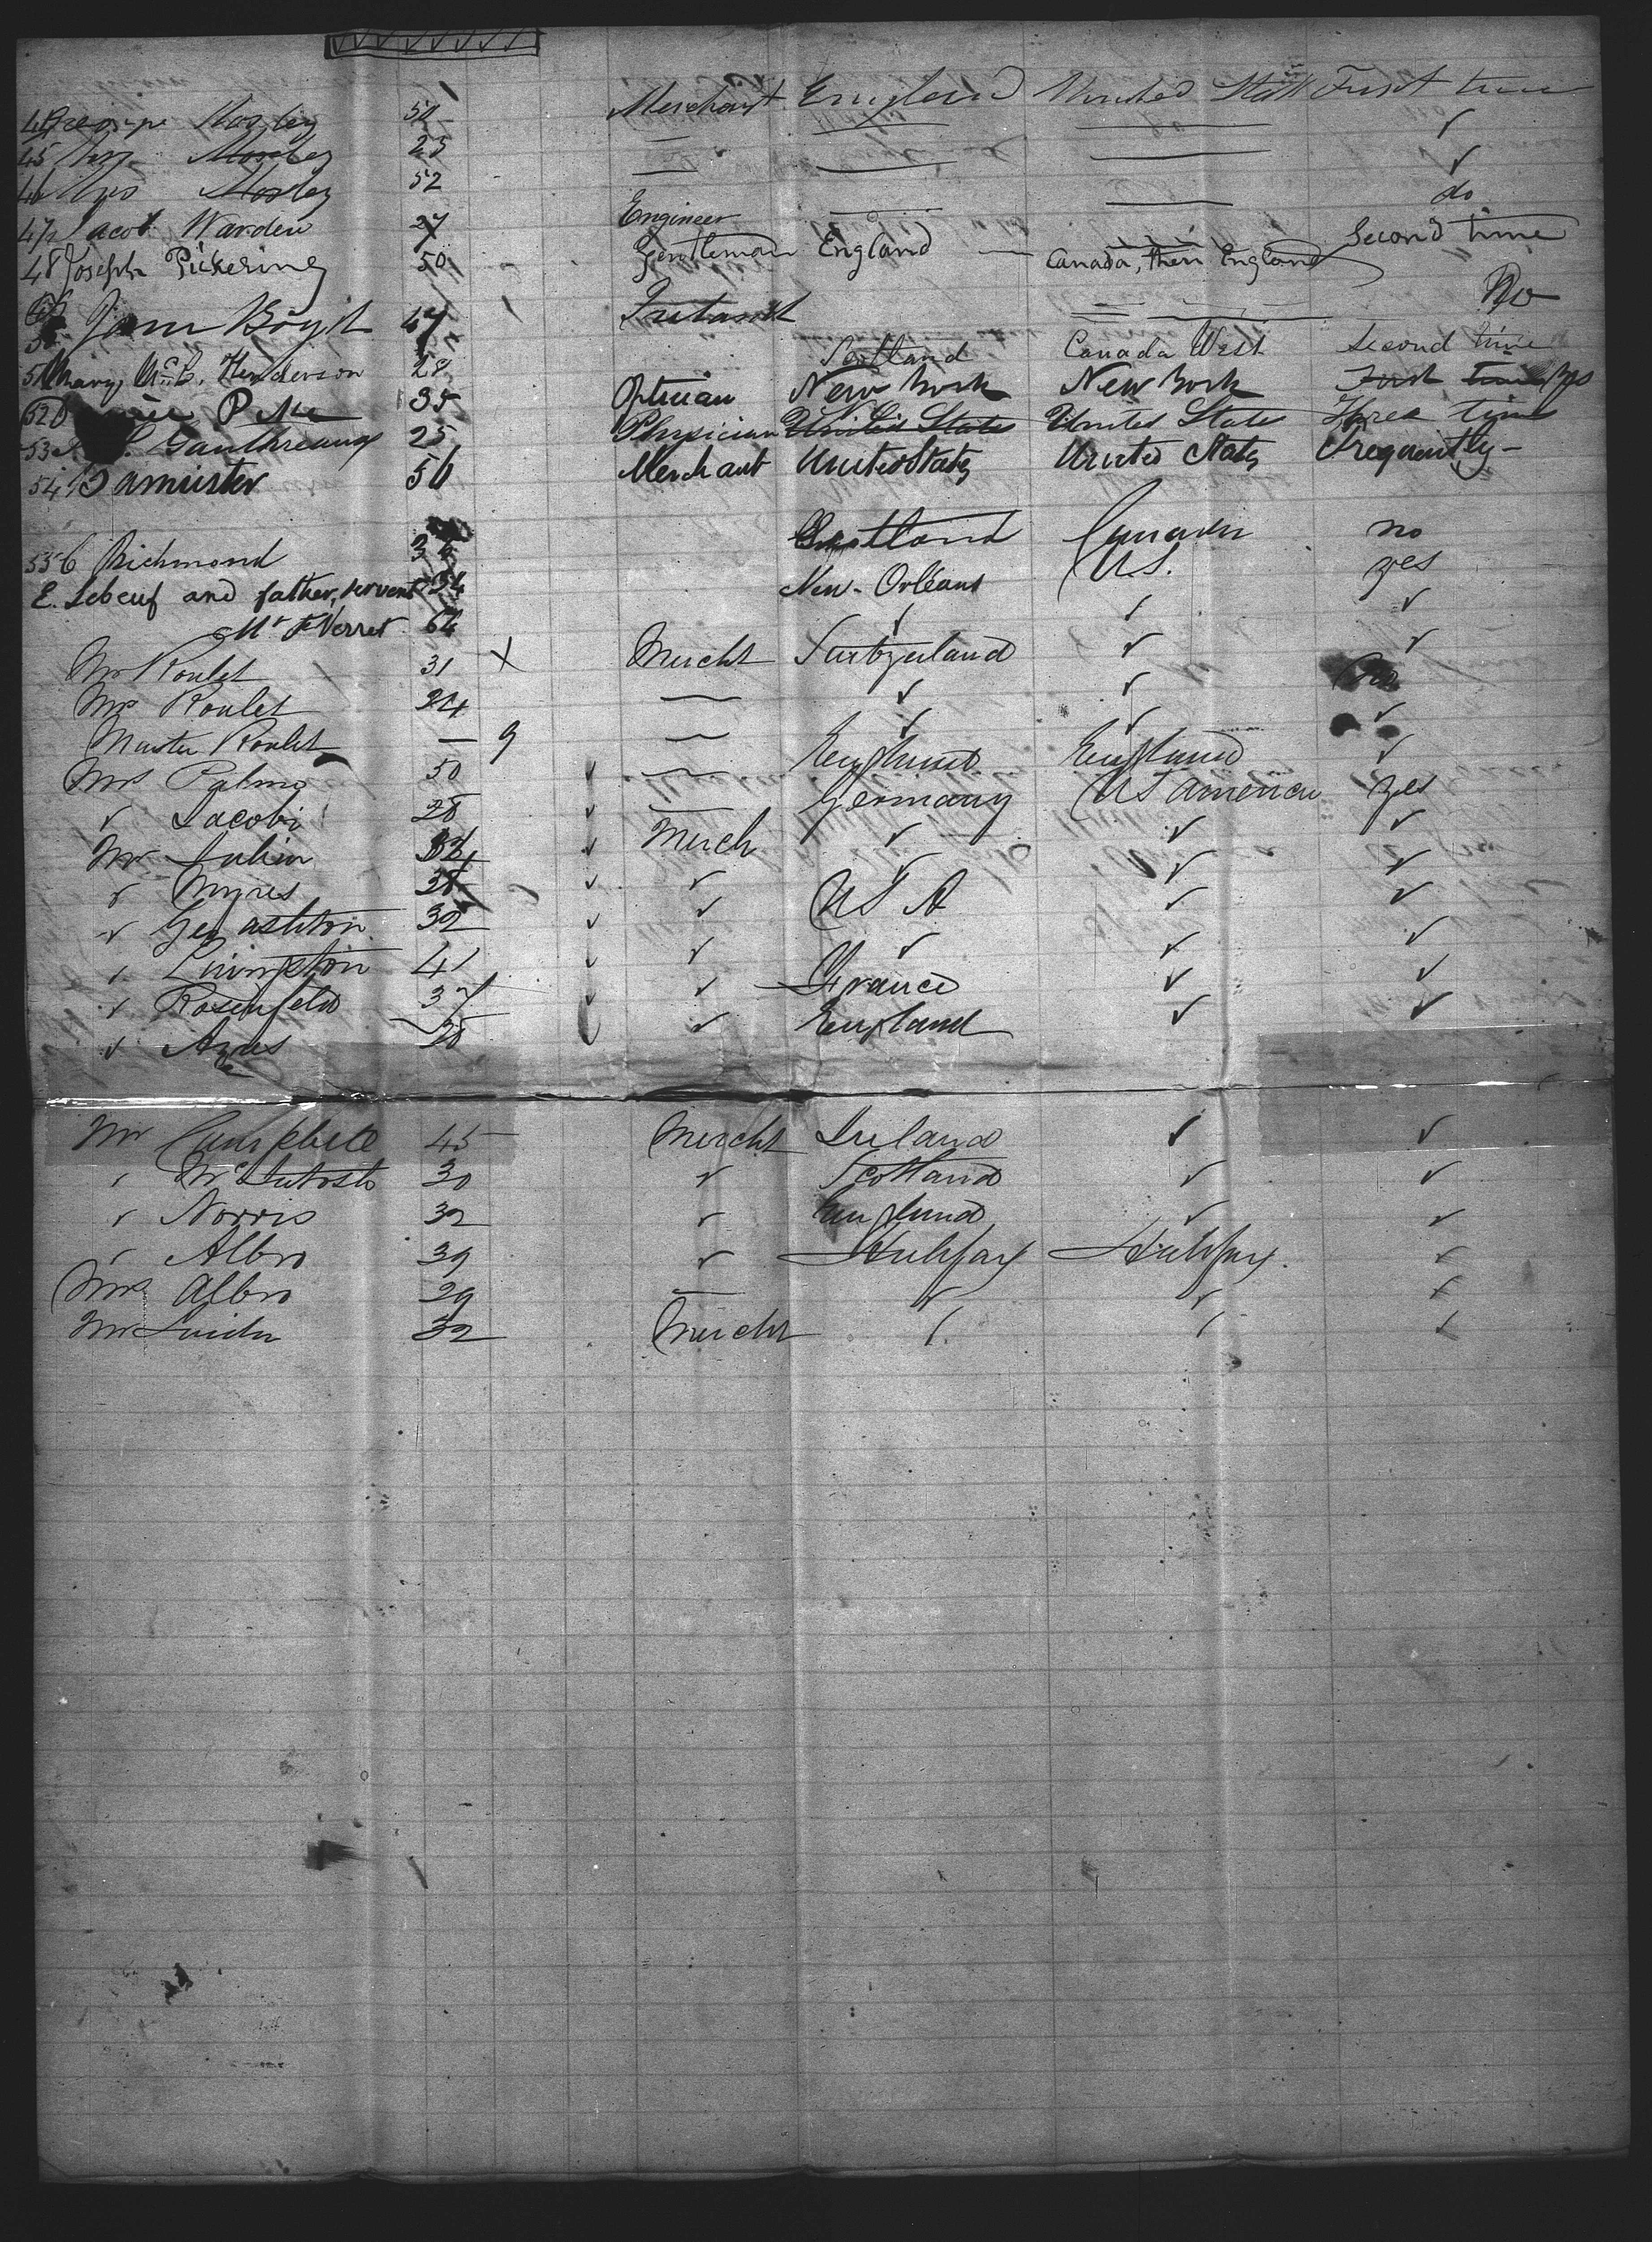 44 George Mosley 50 Merchant England United States First time
45 Miss Mosley 25 — — — ✓
46 Mrs Mosley 52 — — — ✓
47 Jacob Warden 27 Engineer — — do
48 Joseph Pickering 50 Gentleman England — Canada, then England Second time
Boyd 47 No
51 Mary McC. Henderson 28 Scotland Canada West Second time
52 35 Optician New York New York First time
53 Gauthreaux 25 Physician United States United States Three time
54 Bannister 56 Merchant United States United States Frequently -
55 C Richmond 36 Scotland Canada no
E. Lebeuf and father, servent 34 New-Orléans U.S. yes
Mr Verret 64 ✓ ✓ ✓
Mr Roulet 31 X Mercht Switzerland ✓ ✓
Mrs Roulet 24 — ✓ ✓
Master Roulet — 9 — ✓ ✓ ✓
Mrs Palmer 50 ✓ — England England ✓
✓ Jacobi 28 ✓ — Germany US America yes
Mr Lubin ✓ Merch ✓ ✓ ✓
✓ Myres 38 ✓ ✓ ✓ ✓ ✓
✓ Geo Ashton 32 ✓ ✓ U S A ✓ ✓
✓ Livingston 41 ✓ ✓ ✓ ✓ ✓
✓ Rosenfeld 37 ✓ ✓ France ✓ ✓
✓ 28 ✓ England ✓ ✓
Mr Campbell 45 Mercht Ireland ✓ ✓
✓ McIntosh 30 ✓ Scotland ✓ ✓
✓ Norris 32 ✓ England ✓ ✓
✓ Albro 39 ✓ Halifax Halifax. ✓
Mrs Albro 29 — ✓ ✓ ✓
Mr 32 Mercht ✓ ✓ ✓